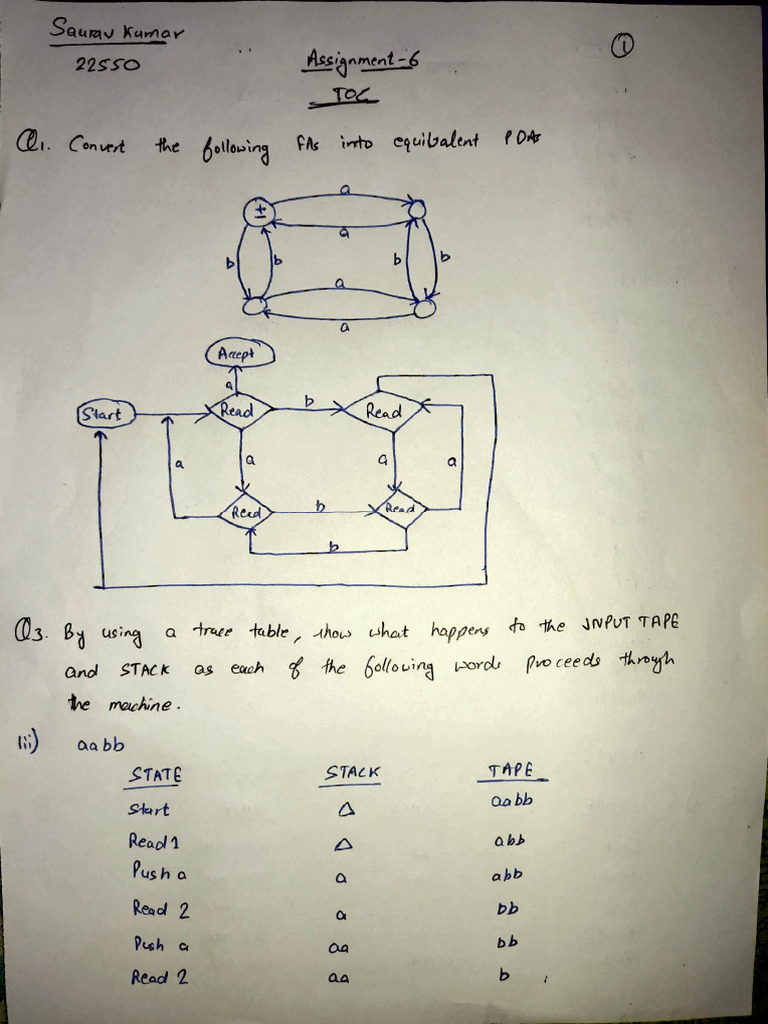 Saurav Kumar
22550
Assignment-6
TOC
i
Q1. Convert the following FAs into equibalent PDAs
a
±
a
b b b b
a
a
Accept
a
Start Read b Read
a a a a
Read b Read
b
Q3. By using a trace table, show what happens to the INPUT TAPE
and STACK as each of the following words proceeds through
the machine.
iii) aabb
STATE STACK TAPE
Start △ aabb
Read 1 △ abb
Push a a abb
Read 2 a bb
Push a aa bb
Read 2 aa b